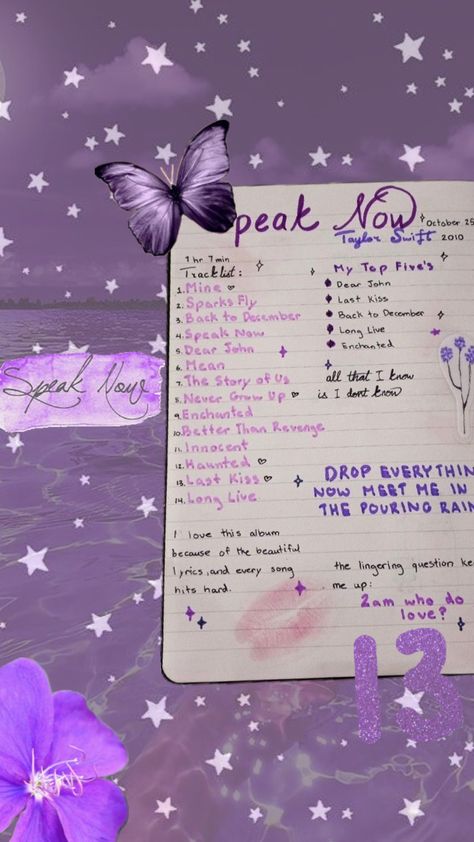 peak Now
October 25
Taylor Swift 2010
1 hr 7 min
Tracklist:
1. Mine ♡
2. Sparks Fly
3. Back to December
4. Speak Now
5. Dear John
6. Mean
7. The Story of Us
8. Never Grow Up ♡
9. Enchanted
10. Better Than Revenge
11. Innocent
12. Haunted ♡
13. Last Kiss ♡
14. Long Live
My Top Five's
Dear John
Last Kiss
Back to December
Long Live
Enchanted
all that I know
is I don't know
Speak Now
DROP EVERYTHIN
NOW MEET ME IN
THE POURING RAIN
I love this album
because of the beautiful
lyrics, and every song
hits hard.
the lingering question ke
me up:
2am who do
love?
13